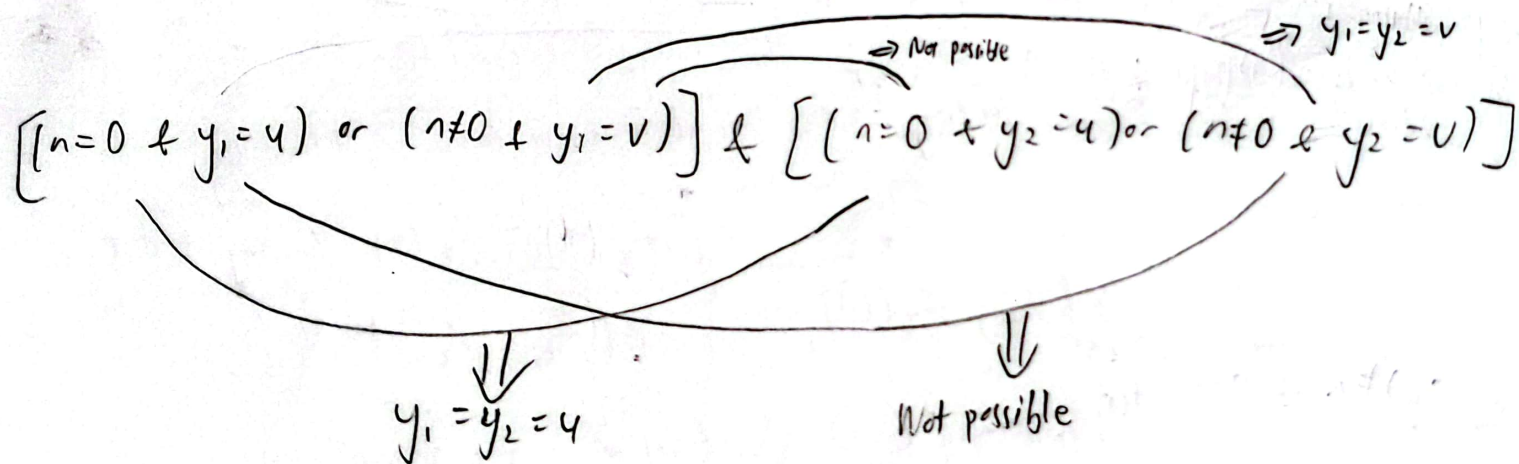 ⇒ y₁=y₂=v
⇒ Not possible
[(n=0 & y₁=u) or (n≠0 & y₁=v)] & [(n=0 & y₂=u) or (n≠0 & y₂=v)]
y₁=y₂=u
Not possible